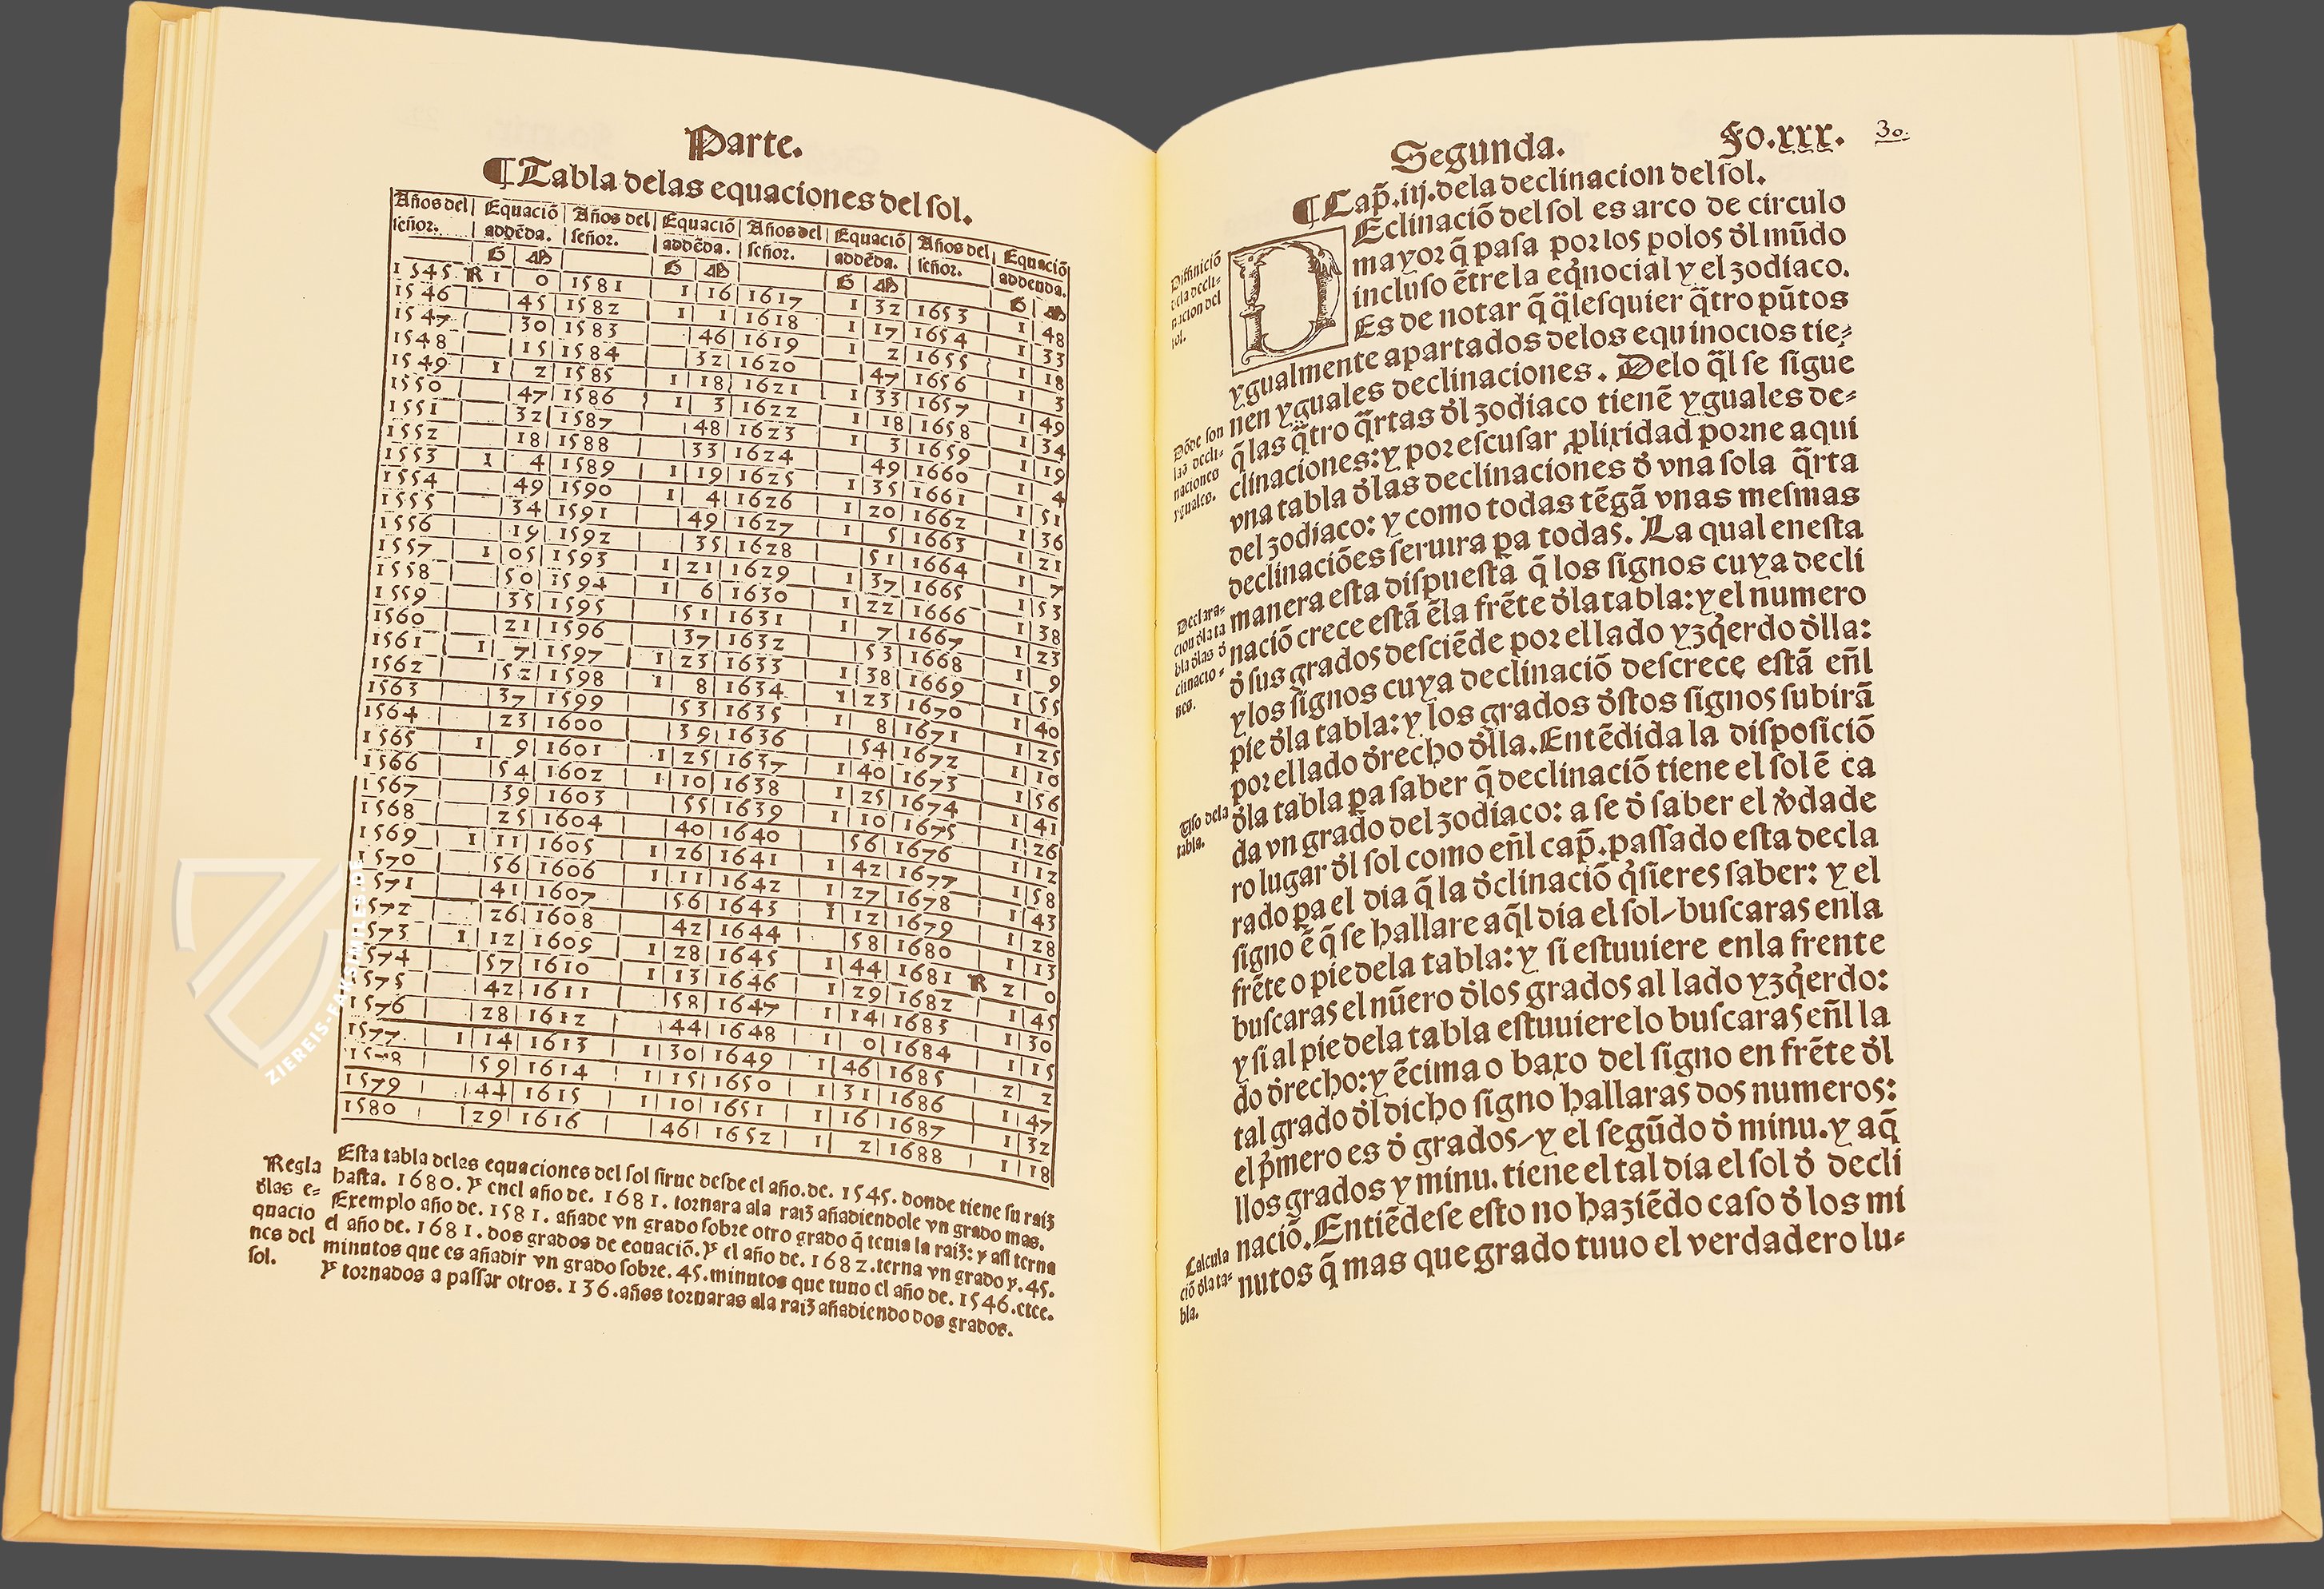 Parte.
¶Tabla delas equaciones del sol.
Años del señor. Equaciõ addẽda. Años del señor. Equaciõ addẽda. Años del señor. Equaciõ addẽda. Años del señor. Equaciõ addenda.
G M G M G M G M
1545 R 1 0 1581 1 16 1617 1 32 1653 1 48
1546 45 1582 1 1 1618 1 17 1654 1 33
1547 30 1583 46 1619 1 2 1655 1 18
1548 15 1584 32 1620 47 1656 1 3
1549 1 2 1585 1 18 1621 1 33 1657 1 49
1550 47 1586 1 3 1622 1 18 1658 1 34
1551 32 1587 48 1623 1 3 1659 1 19
1552 18 1588 33 1624 49 1660 1 4
1553 1 4 1589 1 19 1625 1 35 1661 1 51
1554 49 1590 1 4 1626 1 20 1662 1 36
1555 34 1591 49 1627 1 5 1663 1 21
1556 19 1592 35 1628 51 1664 1 7
1557 1 05 1593 1 21 1629 1 37 1665 1 53
1558 50 1594 1 6 1630 1 22 1666 1 38
1559 35 1595 51 1631 1 7 1667 1 23
1560 21 1596 37 1632 53 1668 1 9
1561 1 7 1597 1 23 1633 1 38 1669 1 55
1562 52 1598 1 8 1634 1 23 1670 1 40
1563 37 1599 53 1635 1 8 1671 1 25
1564 23 1600 39 1636 54 1672 1 10
1565 1 9 1601 1 25 1637 1 40 1673 1 56
1566 54 1602 1 10 1638 1 25 1674 1 41
1567 39 1603 55 1639 1 10 1675 1 26
1568 25 1604 40 1640 56 1676 1 12
1569 1 11 1605 1 26 1641 1 42 1677 1 58
1570 56 1606 1 11 1642 1 27 1678 1 43
1571 41 1607 56 1643 1 12 1679 1 28
1572 26 1608 42 1644 58 1680 1 13
1573 1 12 1609 1 28 1645 1 44 1681 R 2 0
1574 57 1610 1 13 1646 1 29 1682 1 45
1575 42 1611 58 1647 1 14 1683 1 30
1576 28 1612 44 1648 1 0 1684 1 15
1577 1 14 1613 1 30 1649 1 46 1685 2 2
1578 59 1614 1 15 1650 1 31 1686 1 47
1579 44 1615 1 10 1651 1 16 1687 1 32
1580 29 1616 46 1652 1 2 1688 1 18
Regla
ẟlas e-
quacio
nes del
sol.
Esta tabla delas equaciones del sol sirue desde el año.de. 1545. donde tiene su raiz
hasta. 1680. y enel año de. 1681. tornara ala raiz añadiendole vn grado mas.
Exemplo año de. 1581. añade vn grado sobre otro grado q̃ tenia la raiz: y assi terna
el año de. 1681. dos grados de equaciõ. y el año de. 1682.terna vn grado y.45.
minutos que es añadir vn grado sobre. 45.minutos que tuuo el año de. 1546.etce.
y tornados a passar otros. 136.años tornaras ala raiz añadiendo dos grados.
ZIEREIS-FAKSIMILES.DE
Segunda. Fo.xxx. 30.
¶Cap̃.iij.dela declinacion del sol.
Diffinició
dela decli-
nacion del
sol.
DEclinaciõ del sol es arco de circulo
mayor q̃ pasa por los polos ẟl mũdo
incluso ẽtre la eq̇nocial y el zodiaco.
Es de notar q̃ q̃lesquier q̃tro pũtos
ygualmente apartados delos equinocios tie-
nen yguales declinaciones. Delo q̃l se sigue
q̃ las q̃tro q̃rtas ẟl zodiaco tienẽ yguales de-
clinaciones:y por escusar ꝓlixidad porne aqui
vna tabla ẟlas declinaciones ẟ vna sola q̃rta
del zodiaco: y como todas tẽgã vnas mesmas
declinaciões seruira pa todas. La qual enesta
manera esta dispuesta q̃ los signos cuya decli
naciõ crece estã ẽla frẽte ẟla tabla:y el numero
ẟ sus grados desciẽde por el lado yzq̇erdo ẟlla:
y los signos cuya declinaciõ descrece estã eñl
pie ẟla tabla:y los grados ẟstos signos subirã
por el lado ẟrecho ẟlla.Entẽdida la disposiciõ
ẟla tabla pa saber q̃ declinaciõ tiene el sol ẽ ca
da vn grado del zodiaco: a se ẟ saber el ṽdade
ro lugar ẟl sol como eñl cap̃.passado esta decla
rado pa el dia q̃ la ẟclinaciõ q̇sieres saber: y el
signo ẽ q̃ se hallare aq̃l dia el sol/buscaras enla
frẽte o pie dela tabla:y si estuuiere enla frente
buscaras el nũero ẟlos grados al lado yzq̇erdo:
y si al pie dela tabla estuuiere lo buscaras eñl la
do ẟrecho:y ẽcima o baxo del signo en frẽte ẟl
tal grado ẟl dicho signo hallaras dos numeros:
el p̃mero es ẟ grados/y el segũdo ẟ minu.y aq̃
llos grados y minu. tiene el tal dia el sol ẟ decli
naciõ.Entiẽdese esto no haziẽdo caso ẟ los mi
nutos q̃ mas que grado tuuo el verdadero lu-
Dõde son
las decli-
naciones
yguales.
Declara-
cion ẟla ta
bla ẟlas ẟ
clinacio-
nes.
Uso dela
tabla.
Calcula
ciõ ẟla ta-
bla.